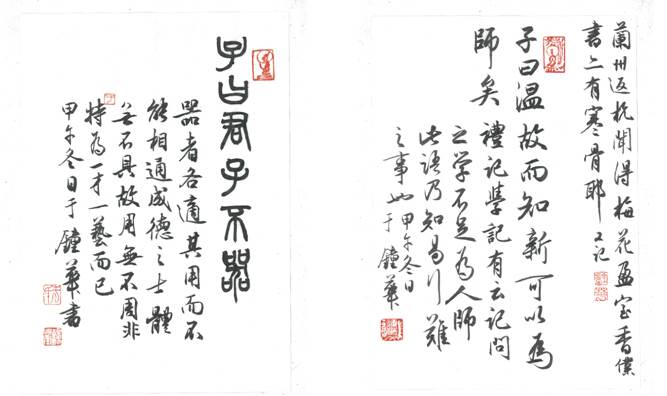 子曰君子不器
器者各適其用而不
能相通成德之士體
无不具故用無不周非
特為一才一藝而已
甲午冬日于鐘華書
蘭州返杭聞得梅花盈室香僕
書有寒骨耶 又記
子曰温故而知新可以為
師矣 禮記學記有云記問
之学不足為人師
此語乃知易行難
之事也 甲午冬日
于鐘華